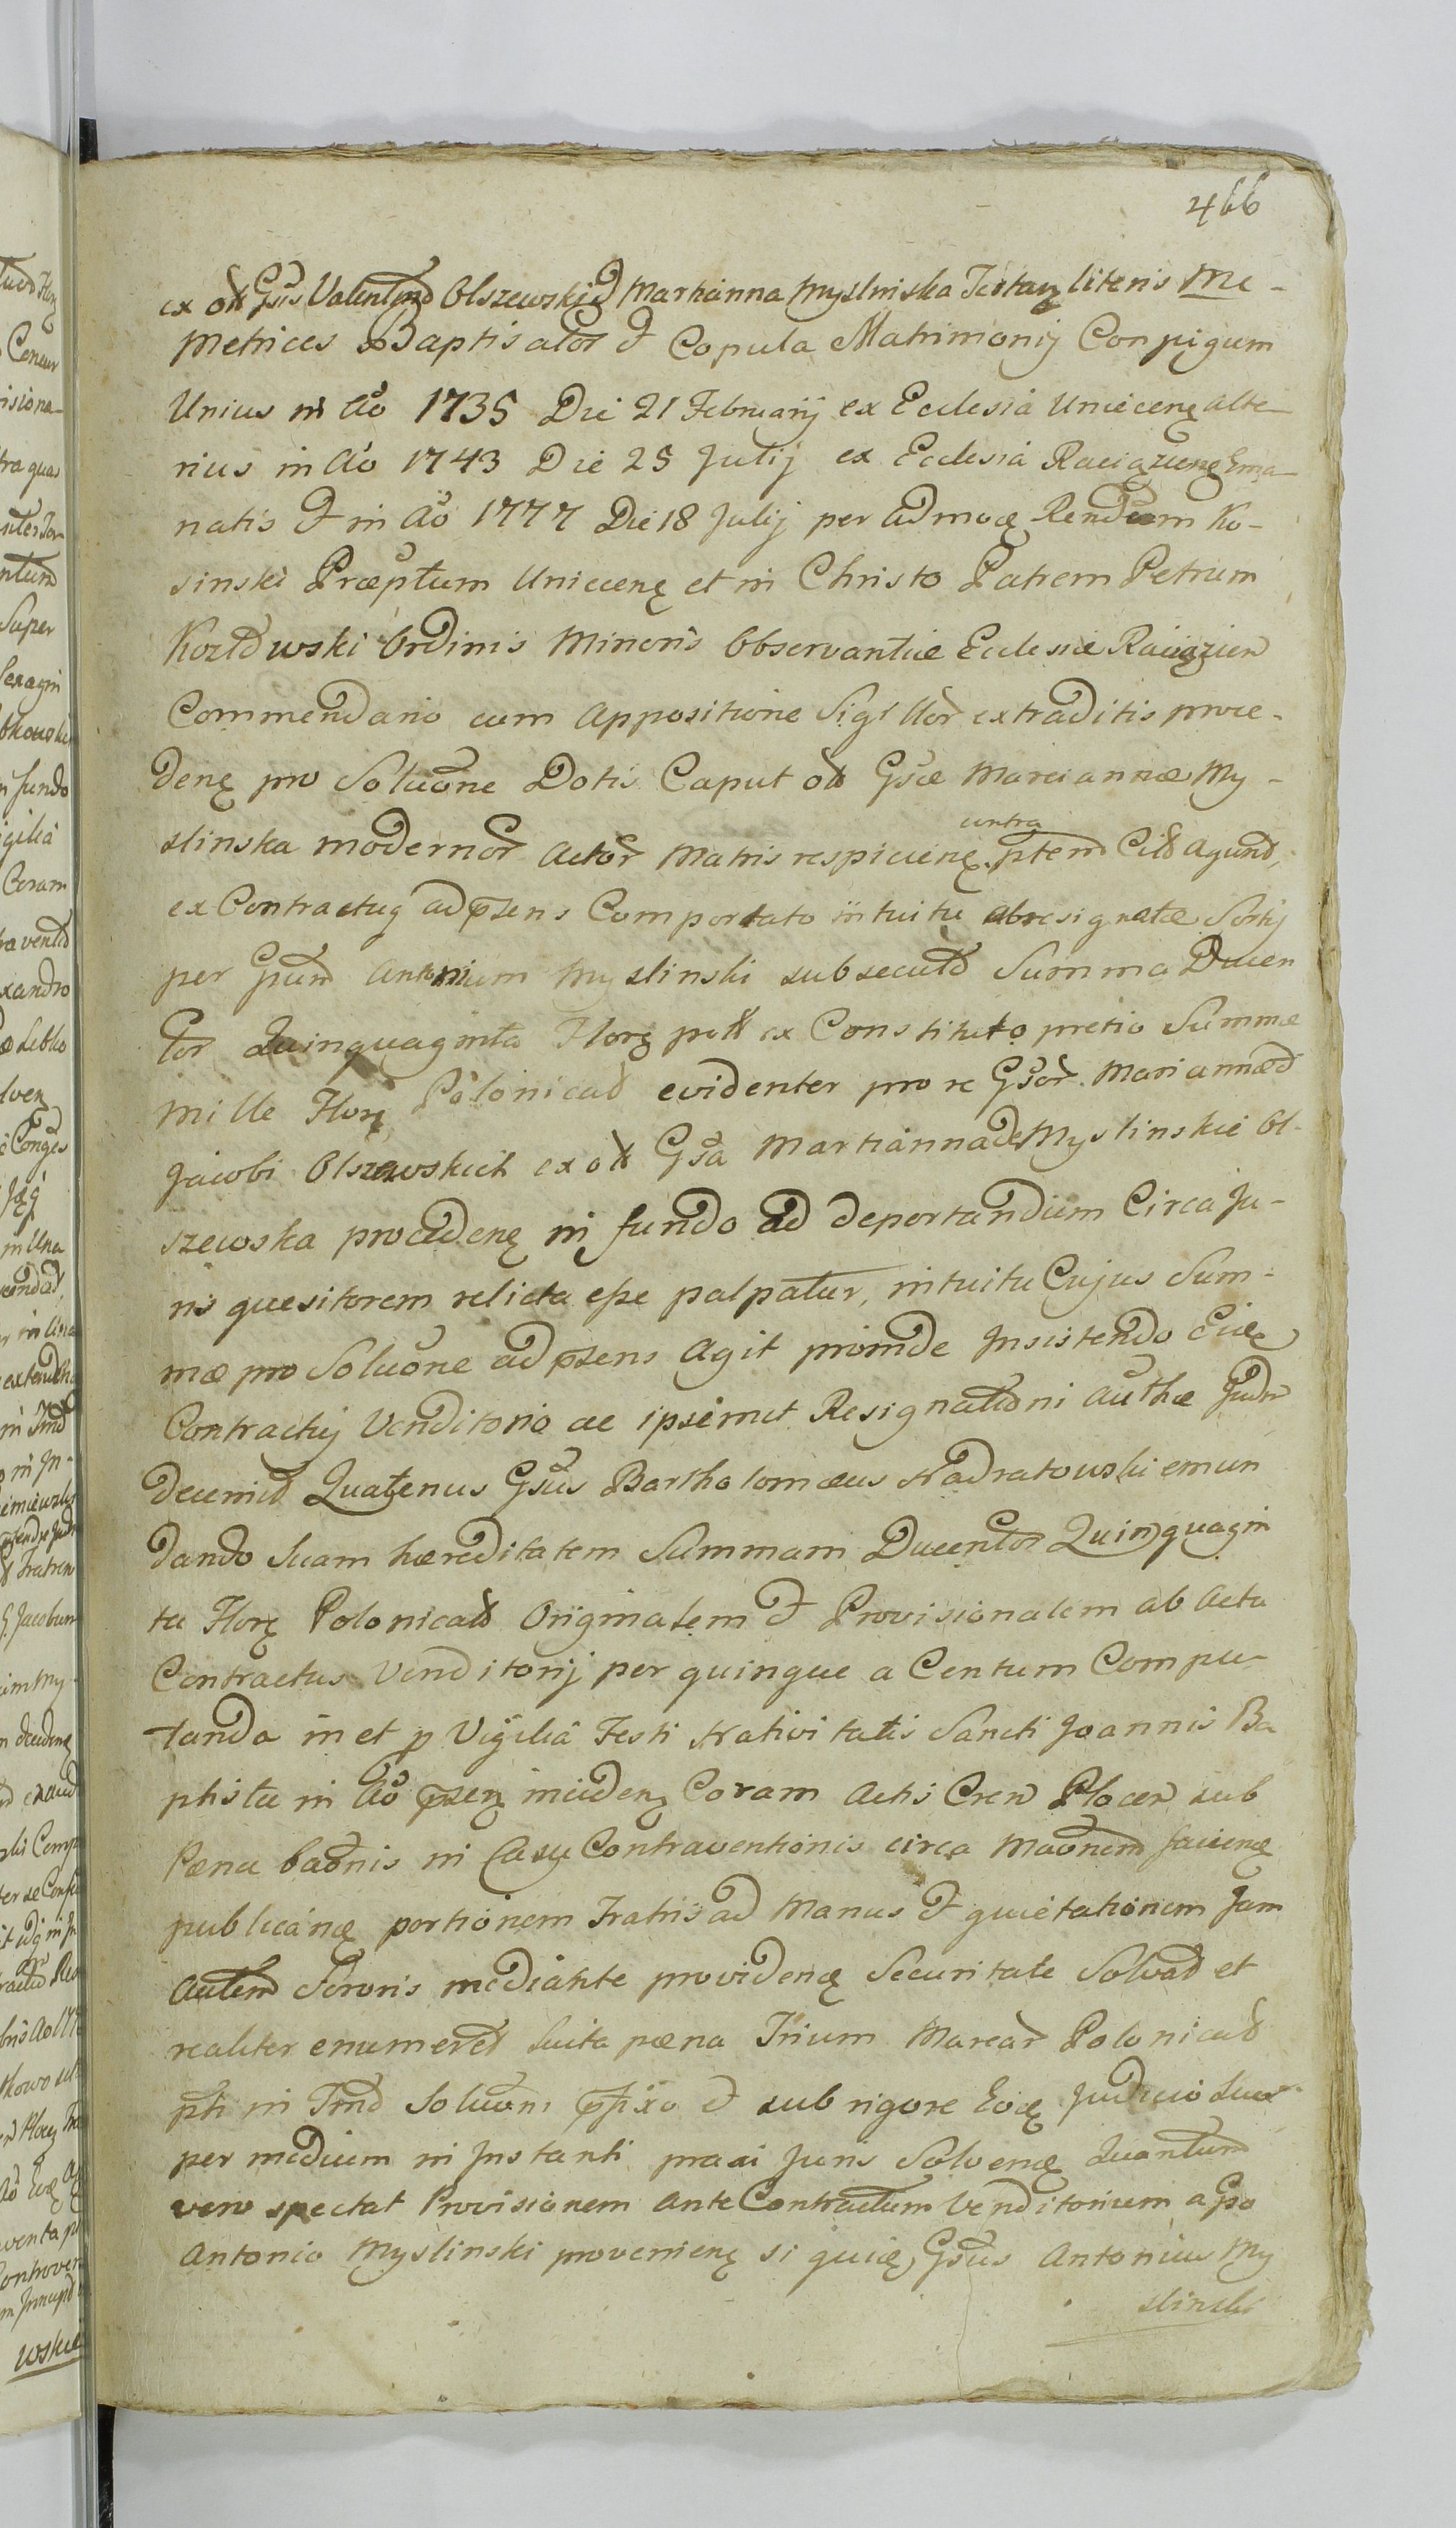 466
ex olt Gsis Valentino Olszewski & Marrianna Myslinska Testanz literis Me-
Metrices Baptisator & Copula Matrimonij Conjugum
Unius in Ao 1735 Die 21 Februarij ex Ecclesia Uniecenę alte-
rius in Ao 1743 Die 25 Julij ex Ecclesia Raciązienę Ema-
natis & in Ao 1777 Die 18 Julij per admoę Rendum Ko-
sinski Præptum Uniecenę et in Christo Patrem Petrum
Kozłowski Ordinis Minoris Observantiæ Ecclesiæ Raciązien
Commendario cum Appositione Sigillor extraditis proce-
denę pro Soluone Dotis Caput olt Gsæ Mariannæ My-
slinska modernor Actor Matris respicienę contra ptem Citt Agund,
ex Contractuq ad psens Comportato intuitu abresignatæ Sortij
per Gsum Antonium Myslinski subsecuto Summa Ducen
tor Quinquaginta Florę pott ex Constituto pretio Summæ
Mille Florę Polonicalt evidenter pro re Gsor Mariannæ &
Jacobi Olszewskich ex olt Gsa Marrianna de Myslinskie Ol-
szewska procedenę in fundo ad deportandum Circa Ju-
ris quesitorem relicta esse palpatur, intuitu Cujus Sum-
mæ pro Soluone ad psens Agit proinde Insistendo Eidę
Contractuj Venditorio ac ipsimet Resignationi authæ Judm
decernit Quatenus Gsus Bartholomæus Nadratowski emun
dando Suam hæreditatem Summam Ducentor Quinquagin
ta Florę Polonicalt Originalem & Provisionalem ab Acta
Contractus Venditorij per quinque a Centum Compu-
tanda in et p Vigilia Festi Nativitatis Sancti Joannis Ba
ptistæ in Ao psenę incidenę Coram Actis Cren Plocen sub
Pæna baonis in Casu Contraventionis circa Maonem facienę
publicanę portionem Fratris ad Manus & quietationem Jam
Autem Sororis mediante providenę Securitate Solvat et
realiter enumeret Suita pæna Trium Marcar Polonicalt
pti in Tmo Soluoni pfixo & sub rigore Eodę Judicio Luen
per medium in Instanti praxi Juris Solvenę Quantum
vero spectat Provisionem ante Contractum Venditorium a Gso
Antonio Myslinski provenienę si quidę Gsus Antonius My
slinski